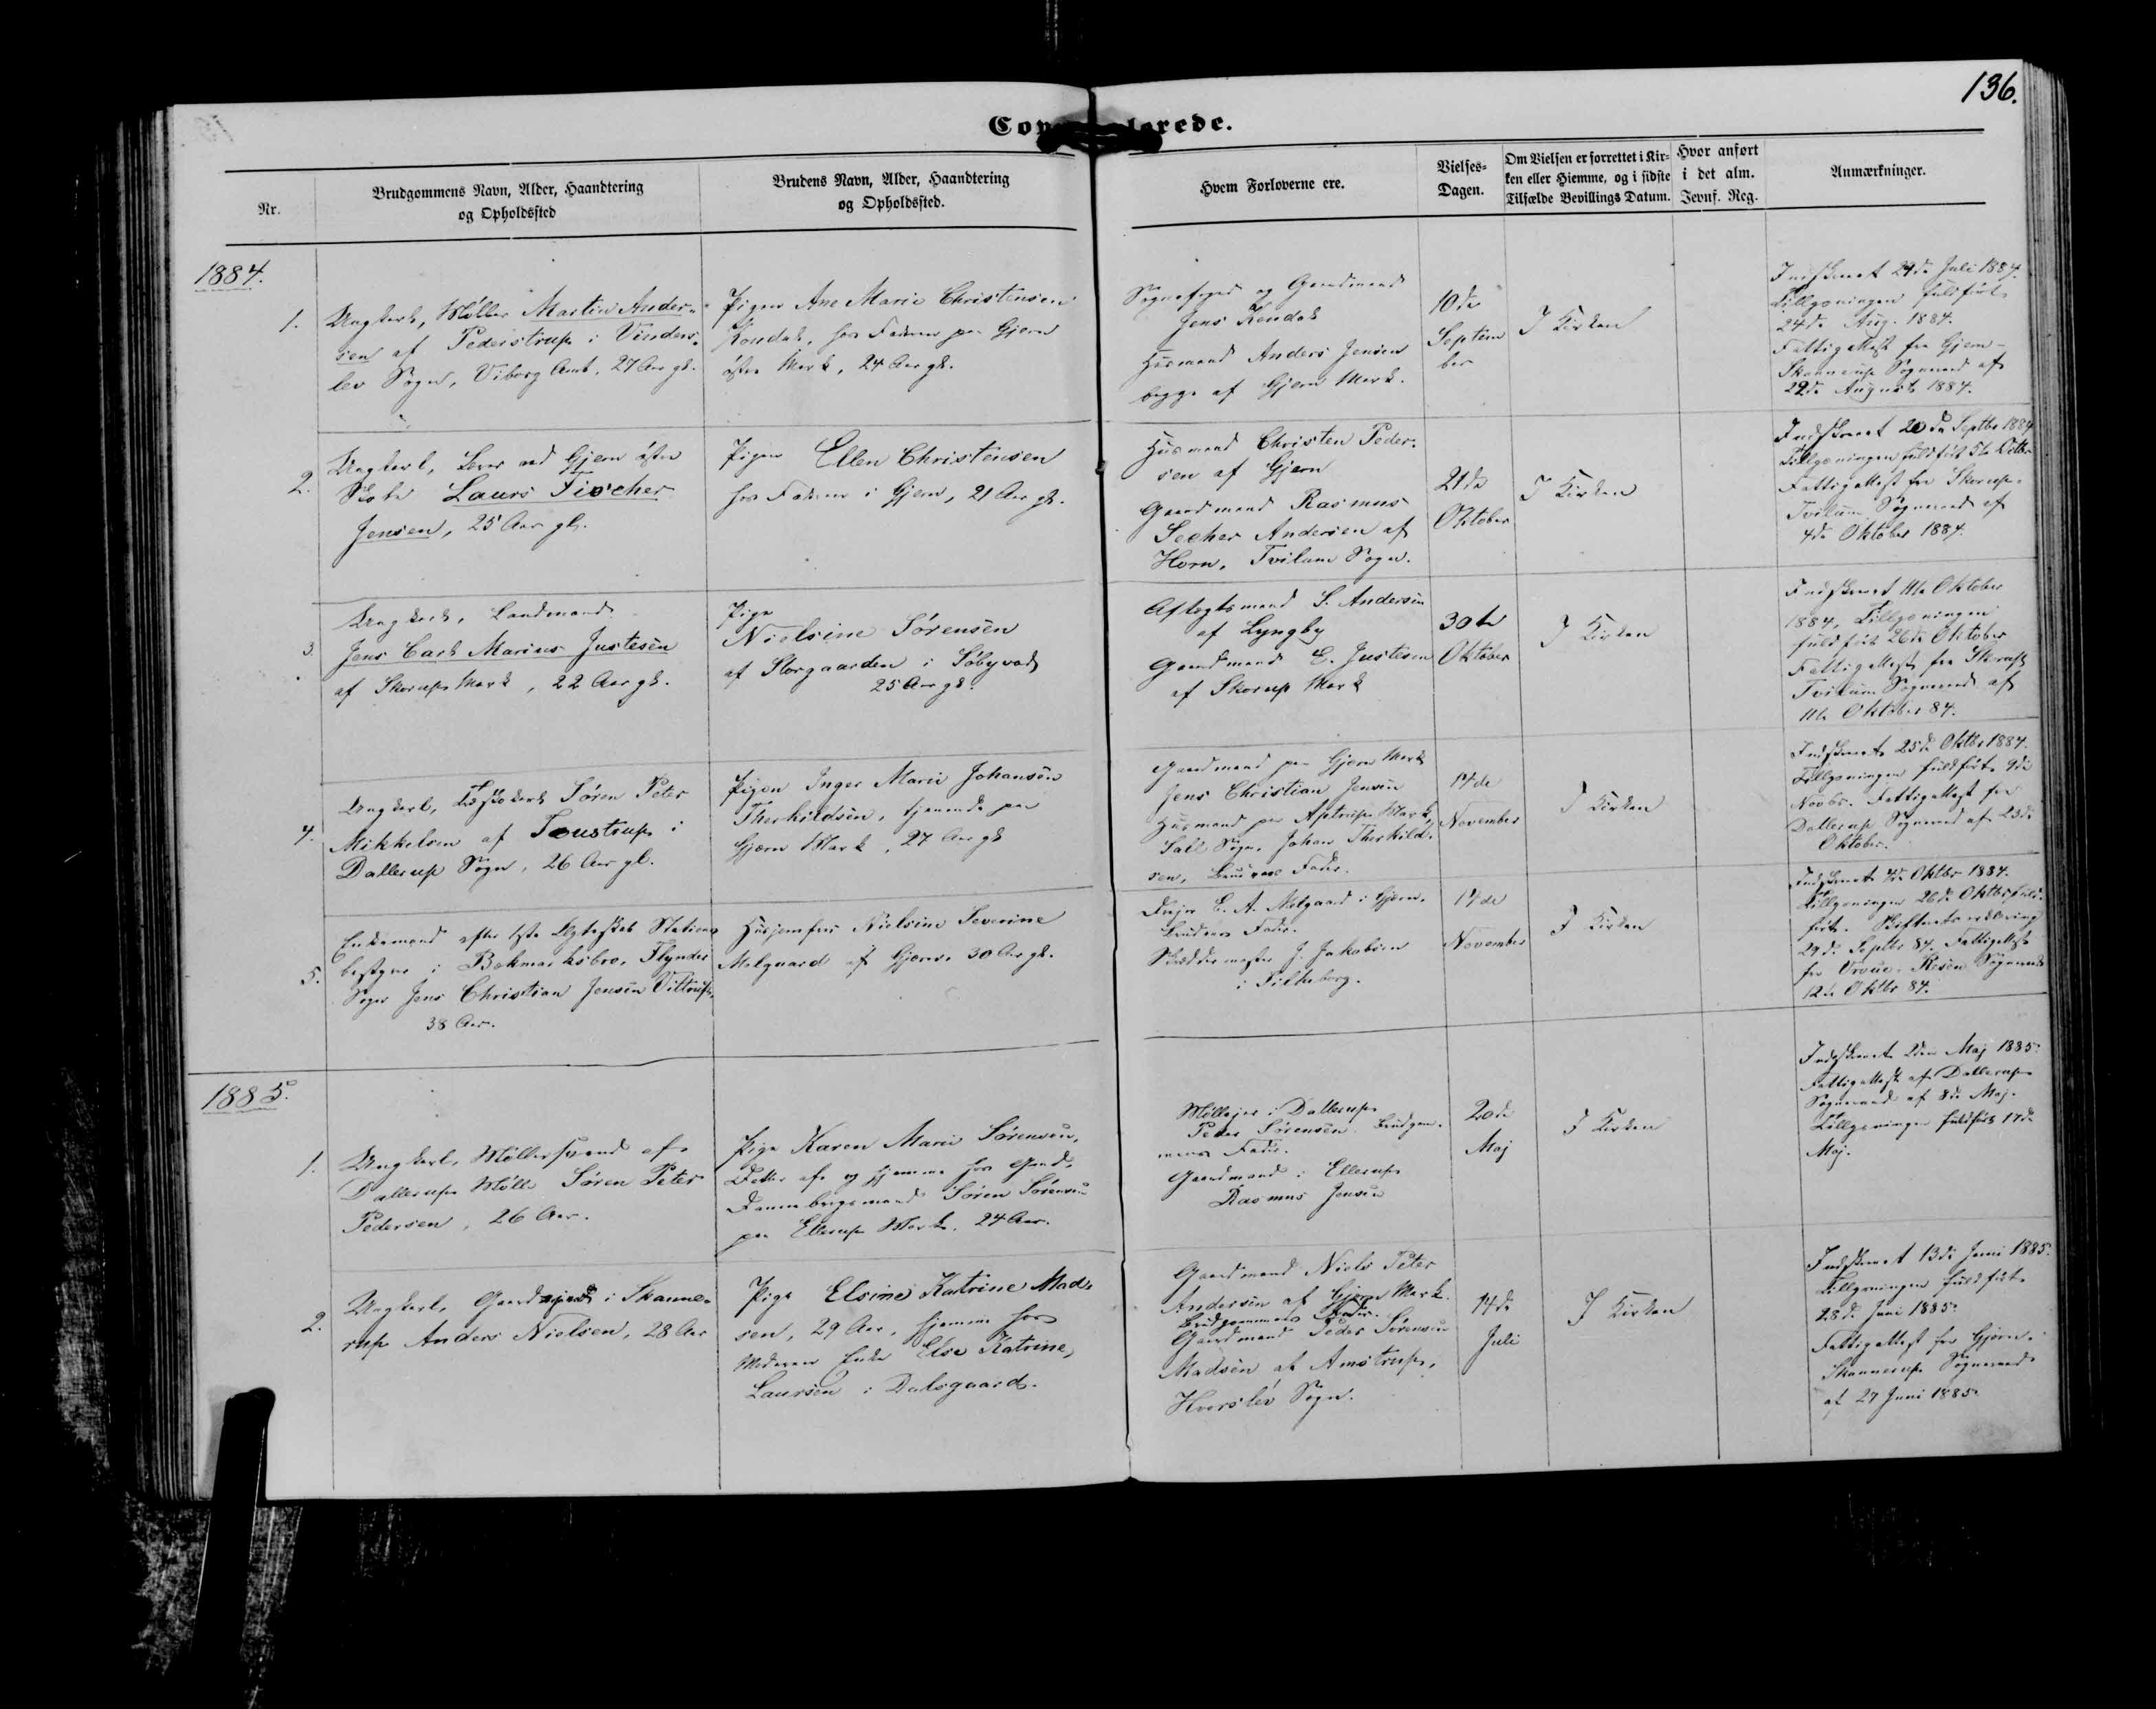 136.
Copulerede.
Nr.
Brudgommens Navn, Alder, Haandtering
og Opholdssted
Brudens Navn, Alder, Haandtering
og Opholdssted.
Hvem Forloverne ere.
Vielses-
Dagen.
Om Vielsen er forrettet i Kir-
ken eller Hiemme, og i sidste
Tilfælde Bevillings Datum.
Hvor anført
i det alm.
Jevnf. Reg.
Anmærkninger.
1884.
1.
Ungkarl, Møller Martin Ander-
sen af Pederstrup i Vinders-
lev Sogn, Viborg Amt, 27 Aar gl.
Pigen Ane Marie Christensen
Kondal, hos Faderen paa Gjern
østre Mark, 24 Aar gl.
Sognefoged og Gaardmand
Jens Kondal
Husmand Anders Jensen
begge af Gjern Mark.
10de
Septem
ber
I Kirken
Indskrevet 29de Juli 1884.
Tillysningen fuldført
24de Aug. 1884.
Fattigattest fra Gjern-
Skannerup Sogneraad af
22de August 1884.
2.
Ungkarl, Lærer ved Gjern østre
Skole Laurs Fischer
Jensen, 25 Aar gl.
Pigen Ellen Christensen
hos Faderen i Gjern, 21 Aar gl.
Husmand Christen Peder-
sen af Gjern
Gaardmand Rasmus
Secher Andersen af
Horn, Tvilum Sogn.
21de
Oktober
I Kirken
Indskrevet 20de Septbr 1884
Tillysningen fuldført 5te Oktbr
Fattigattest fra Skorup-
Tvilum Sogneraad af
4de Oktober 1884.
3.
Ungkarl, Landmand
Jens Carl Marius Justesen
af Skorup Mark, 22 Aar gl.
Pige
Nielsine Sørensen
af Storgaarden i Søbyvad
25 Aar gl.
Aftægtsmand S. Andersen
af Lyngby
Gaardmand E. Justesen
af Skorup Mark
30te
Oktober
I Kirken
Indskrevet 11te Oktober
1884, Tillysningen
fuldført 26de Oktober
Fattigattest fra Skorup
Tvilum Sogneraad af
11te Oktober 84.
4.
Ungkarl, Søren Peter
Mikkelsen af Toustrup i
Dallerup Sogn, 26 Aar gl.
Pigen Inger Marie Johansen
Therkildsen, tjenende paa
Gjern Mark, 27 Aar gl
Gaardmand paa Gjern Mark
Jens Christian Jensen
Husmand paa Aptrup Mark,
Sall Sogn, Johan Therkild-
sen, Brudens Fader.
14de
November
I Kirken
Indskrevet 25de Oktbr 1884.
Tillysningen fuldført 9de
Novbr. Fattigattest fra
Dallerup Sogneraad af 23de
Oktober.
5.
Enkemand efter 1ste Ægteskab Stations
bestyrer i Bækmarksbro, Flynder
Sogn Jens Christian Jensen Vittrup,
38 Aar.
Husjomfru Nielsine Severine
Melgaard af Gjern, 30 Aar gl.
Melgaard i Gjern,
Brudens Fader.
J. Jakobsen
i Silkeborg.
14de
November
I Kirken
Indskrevet Oktbr 1884.
Tillysningen 26de Oktbr fuld-
ført. Skifteretserklæring
29de Septbr 84, Fattigattest
fra Vroue-Resen Sogneraad
12te Oktbr 84.
1885.
1.
Ungkarl, Møllersvend af
Dallerup Mølle Søren Peter
Pedersen, 26 Aar.
Pige Karen Marie Sørensen,
Datter af og hjemme hos Gaard.
Dannebrogsmand Søren Sørensen
paa Ellerup Mark. 24 Aar.
Mølleejer i Dallerup
Peder Sørensen. Brudgom-
mens Fader.
Gaardmand i Ellerup
Rasmus Jensen
20de
Maj
I Kirken
Indskrevet 2den Maj 1885.
Fattigattest af Dallerup
Sogneraad af 8de Maj.
Tillysningen fuldført 17de
Maj.
2.
Ungkarl, Gaardejer i Skanne-
rup Anders Nielsen, 28 Aar
Pige Elsine Katrine Mad-
sen, 29 Aar, hjemme hos
Moderen Enke Else Katrine
Laursen i Dalsgaard.
Gaardmand Niels Peter
Andersen af Gjern Mark.
Brudgommens Fader.
Gaardmand Peder Sørensen
Madsen af Amstrup,
Hvorslev Sogn.
14de
Juli
I Kirken
Indskrevet 13de Juni 1885.
Tillysningen fuldført
28de Juni 1885.
Fattigattest fra Gjern-
Skannerup Sogneraad
af 27 Juni 1885.